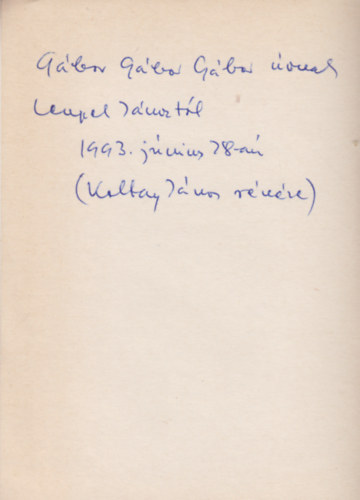 Gábor Gábor Gábor úrnak
Lengyel Jánostól
1993. június 28-án
(Koltay János részére)